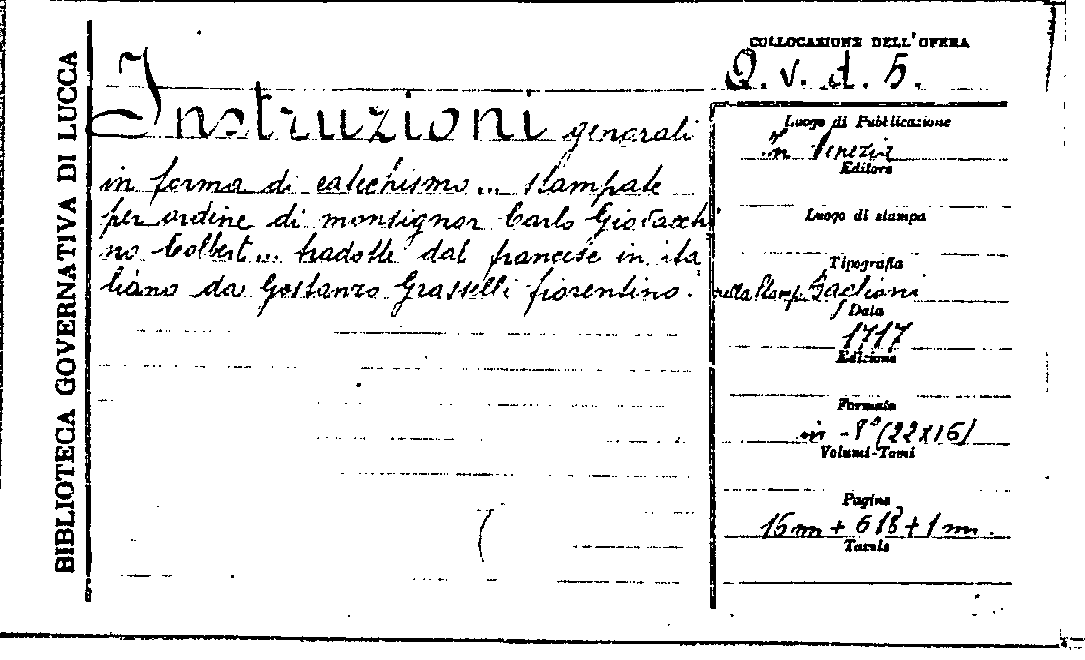 BIBLIOTECA GOVERNATIVA DI LUCCA
Instruzioni generali
in forma di catechismo... stampate
per ordine di monsignor Carlo Giovacchi
no Colbert... tradotte dal francese in ita
liano da Gostanzo Grasselli fiorentino.
COLLOCAZIONE DELL'OPERA
Q. v. d. 5.
Luogo di Pubblicazione
in Venezia
Editore
Luogo di stampa
Tipografia
nella Stamp.
Data
1717
Edizione
Formato
in -8° (22x16)
Volumi-Tomi
Pagine
16 nn + 618 + 1 nn.
Tavole